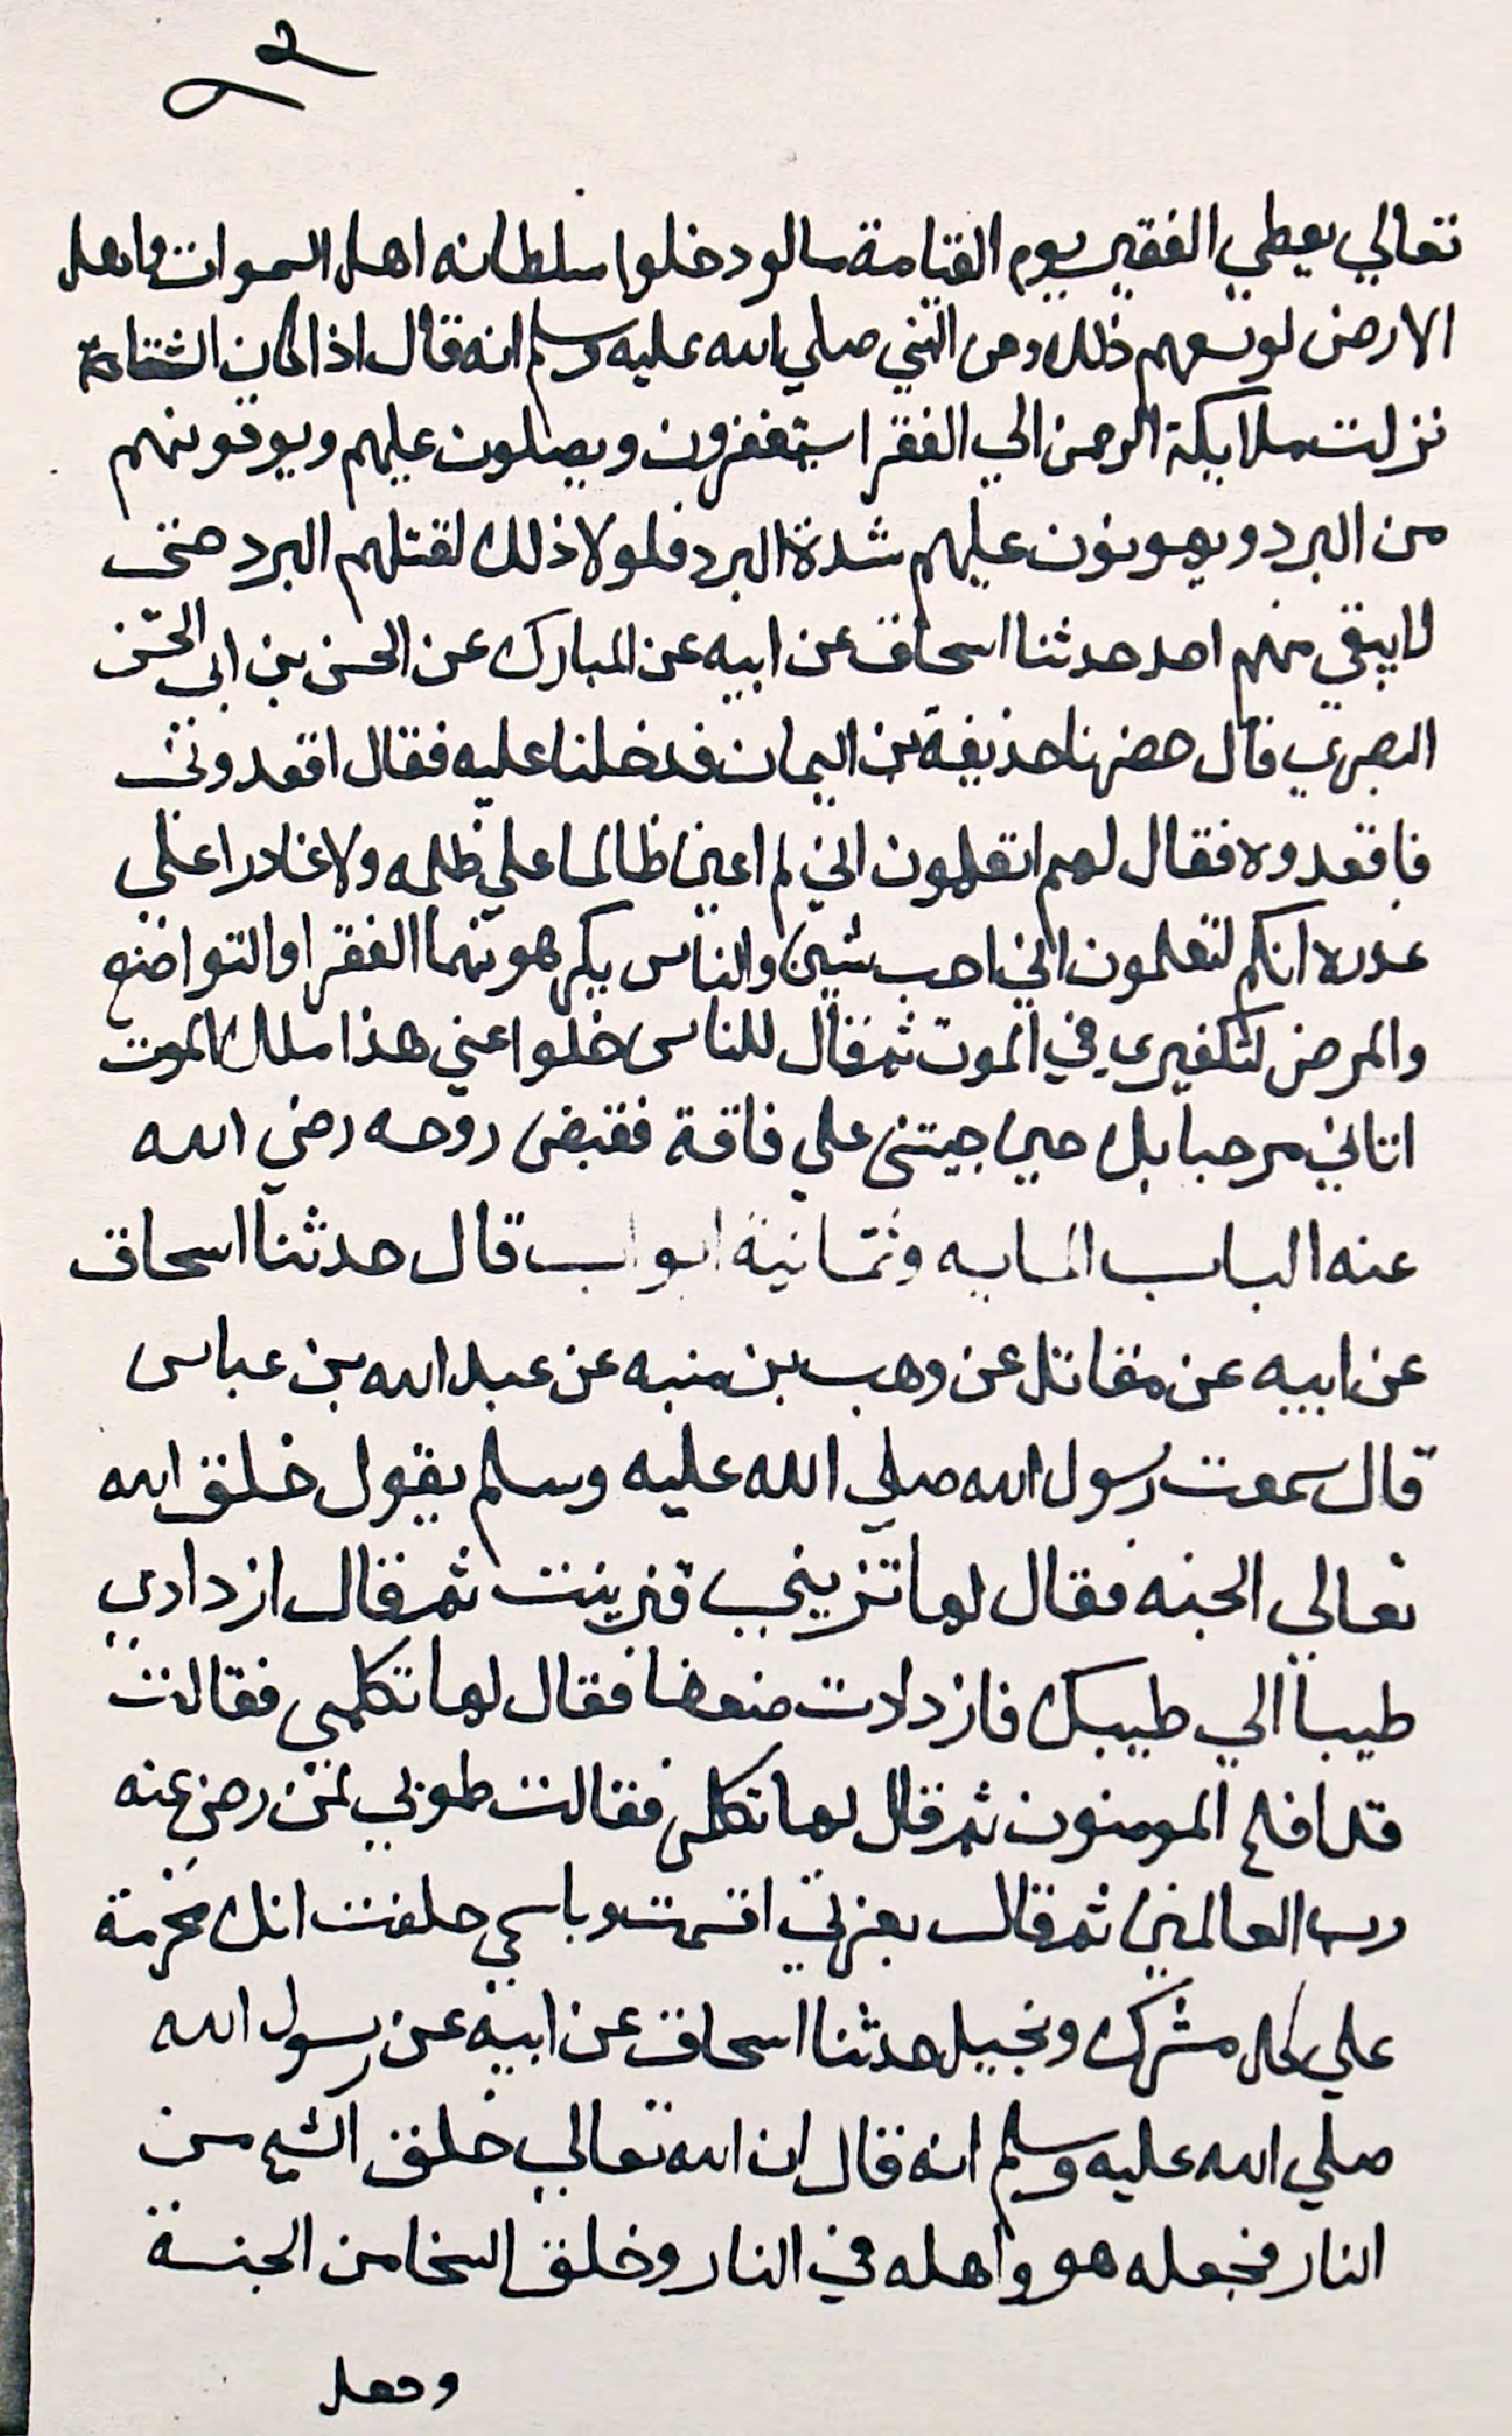 تعالي يعطي الفقير يوم القيامة مالو دخلوا سلطانه اهل السموات واهل
الارض لوسعهم ذلك وعن النبي صلي الله عليه وسلم انه قال اذا كان الشتاء
نزلت ملايكة الرحمن الي الفقرا يستغفرون ويصلون عليهم ويوقونهم
من البرد ويهونون عليهم شدة البرد فلولا ذلك لقتلهم البرد حتى
لا يبقي منهم احد حدثنا اسحاق عن ابيه عن المبارك عن الحسن بن ابي الحسن
البصري قال حضرنا حذيفة بن اليمان فدخلنا عليه فقال اقعدوني
فاقعدوه فقال لهم اتعلمون اني لم اعين ظالما علي ظلمه ولا غادرا علي
غدره انكم لتعلمون اني احب شيين والناس يكرهونهما الفقر او التواضع
والمرض لتكفيري في الموت ثم قال للناس خلوا عني هذا ملك الموت
اتاني مرحبا بك حين جيتنى علي فاقة فقبض روحه رضي الله
عنه الباب المايه وثمانية ابواب قال حدثنا اسحاق
عن ابيه عن مقاتل عن وهب بن منبه عن عبد الله بن عباس
قال سمعت رسول الله صلي الله عليه وسلم يقول خلق الله
تعالي الجنه فقال لها تزيني فتزينت ثم قال ازدادي
طيبا الي طيبك فازدادت ضعفا فقال لها تكلمي فقالت
قد افلح المومنون ثم قال لها تكلمي فقالت طوبي لمن رضي عنه
رب العالمين ثم قال بعزتي اقسمت وباسمي حلفت انك محرمة
علي كل مشرك وبخيل حدثنا اسحاق عن ابيه عن رسول الله
صلي الله عليه وسلم انه قال ان الله تعالي خلق الشح من
النار فجعله هو واهله في النار وخلق السخا من الجنة
وجعل